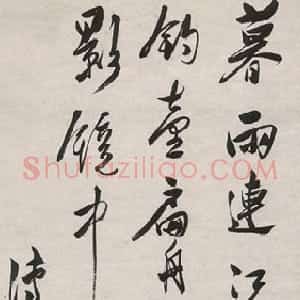 暮雨連江
鈎壺扁舟
影鏡中
Shufaziliao.com